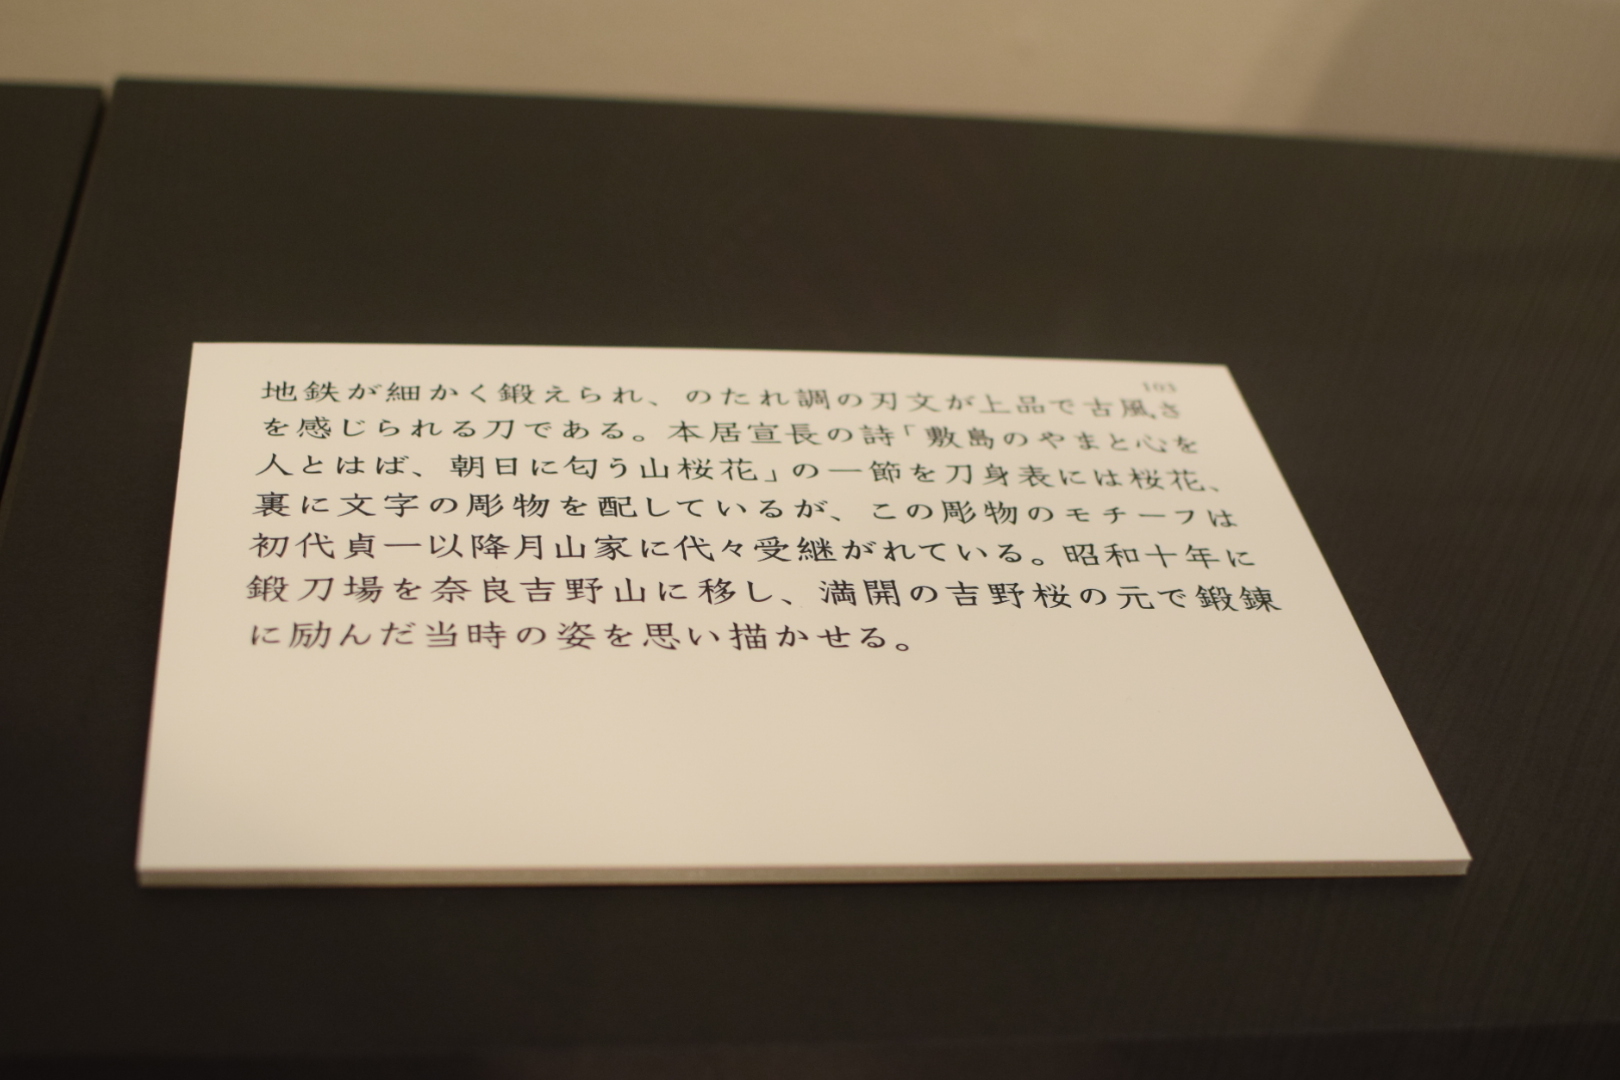 103
地鉄が細かく鍛えられ、のたれ調の刃文が上品で古風さ
を感じられる刀である。本居宣長の詩「敷島のやまと心を
人とはば、朝日に匂う山桜花」の一節を刀身表には桜花、
裏に文字の彫物を配しているが、この彫物のモチーフは
初代貞一以降月山家に代々受継がれている。昭和十年に
鍛刀場を奈良吉野山に移し、満開の吉野桜の元で鍛錬
に励んだ当時の姿を思い描かせる。